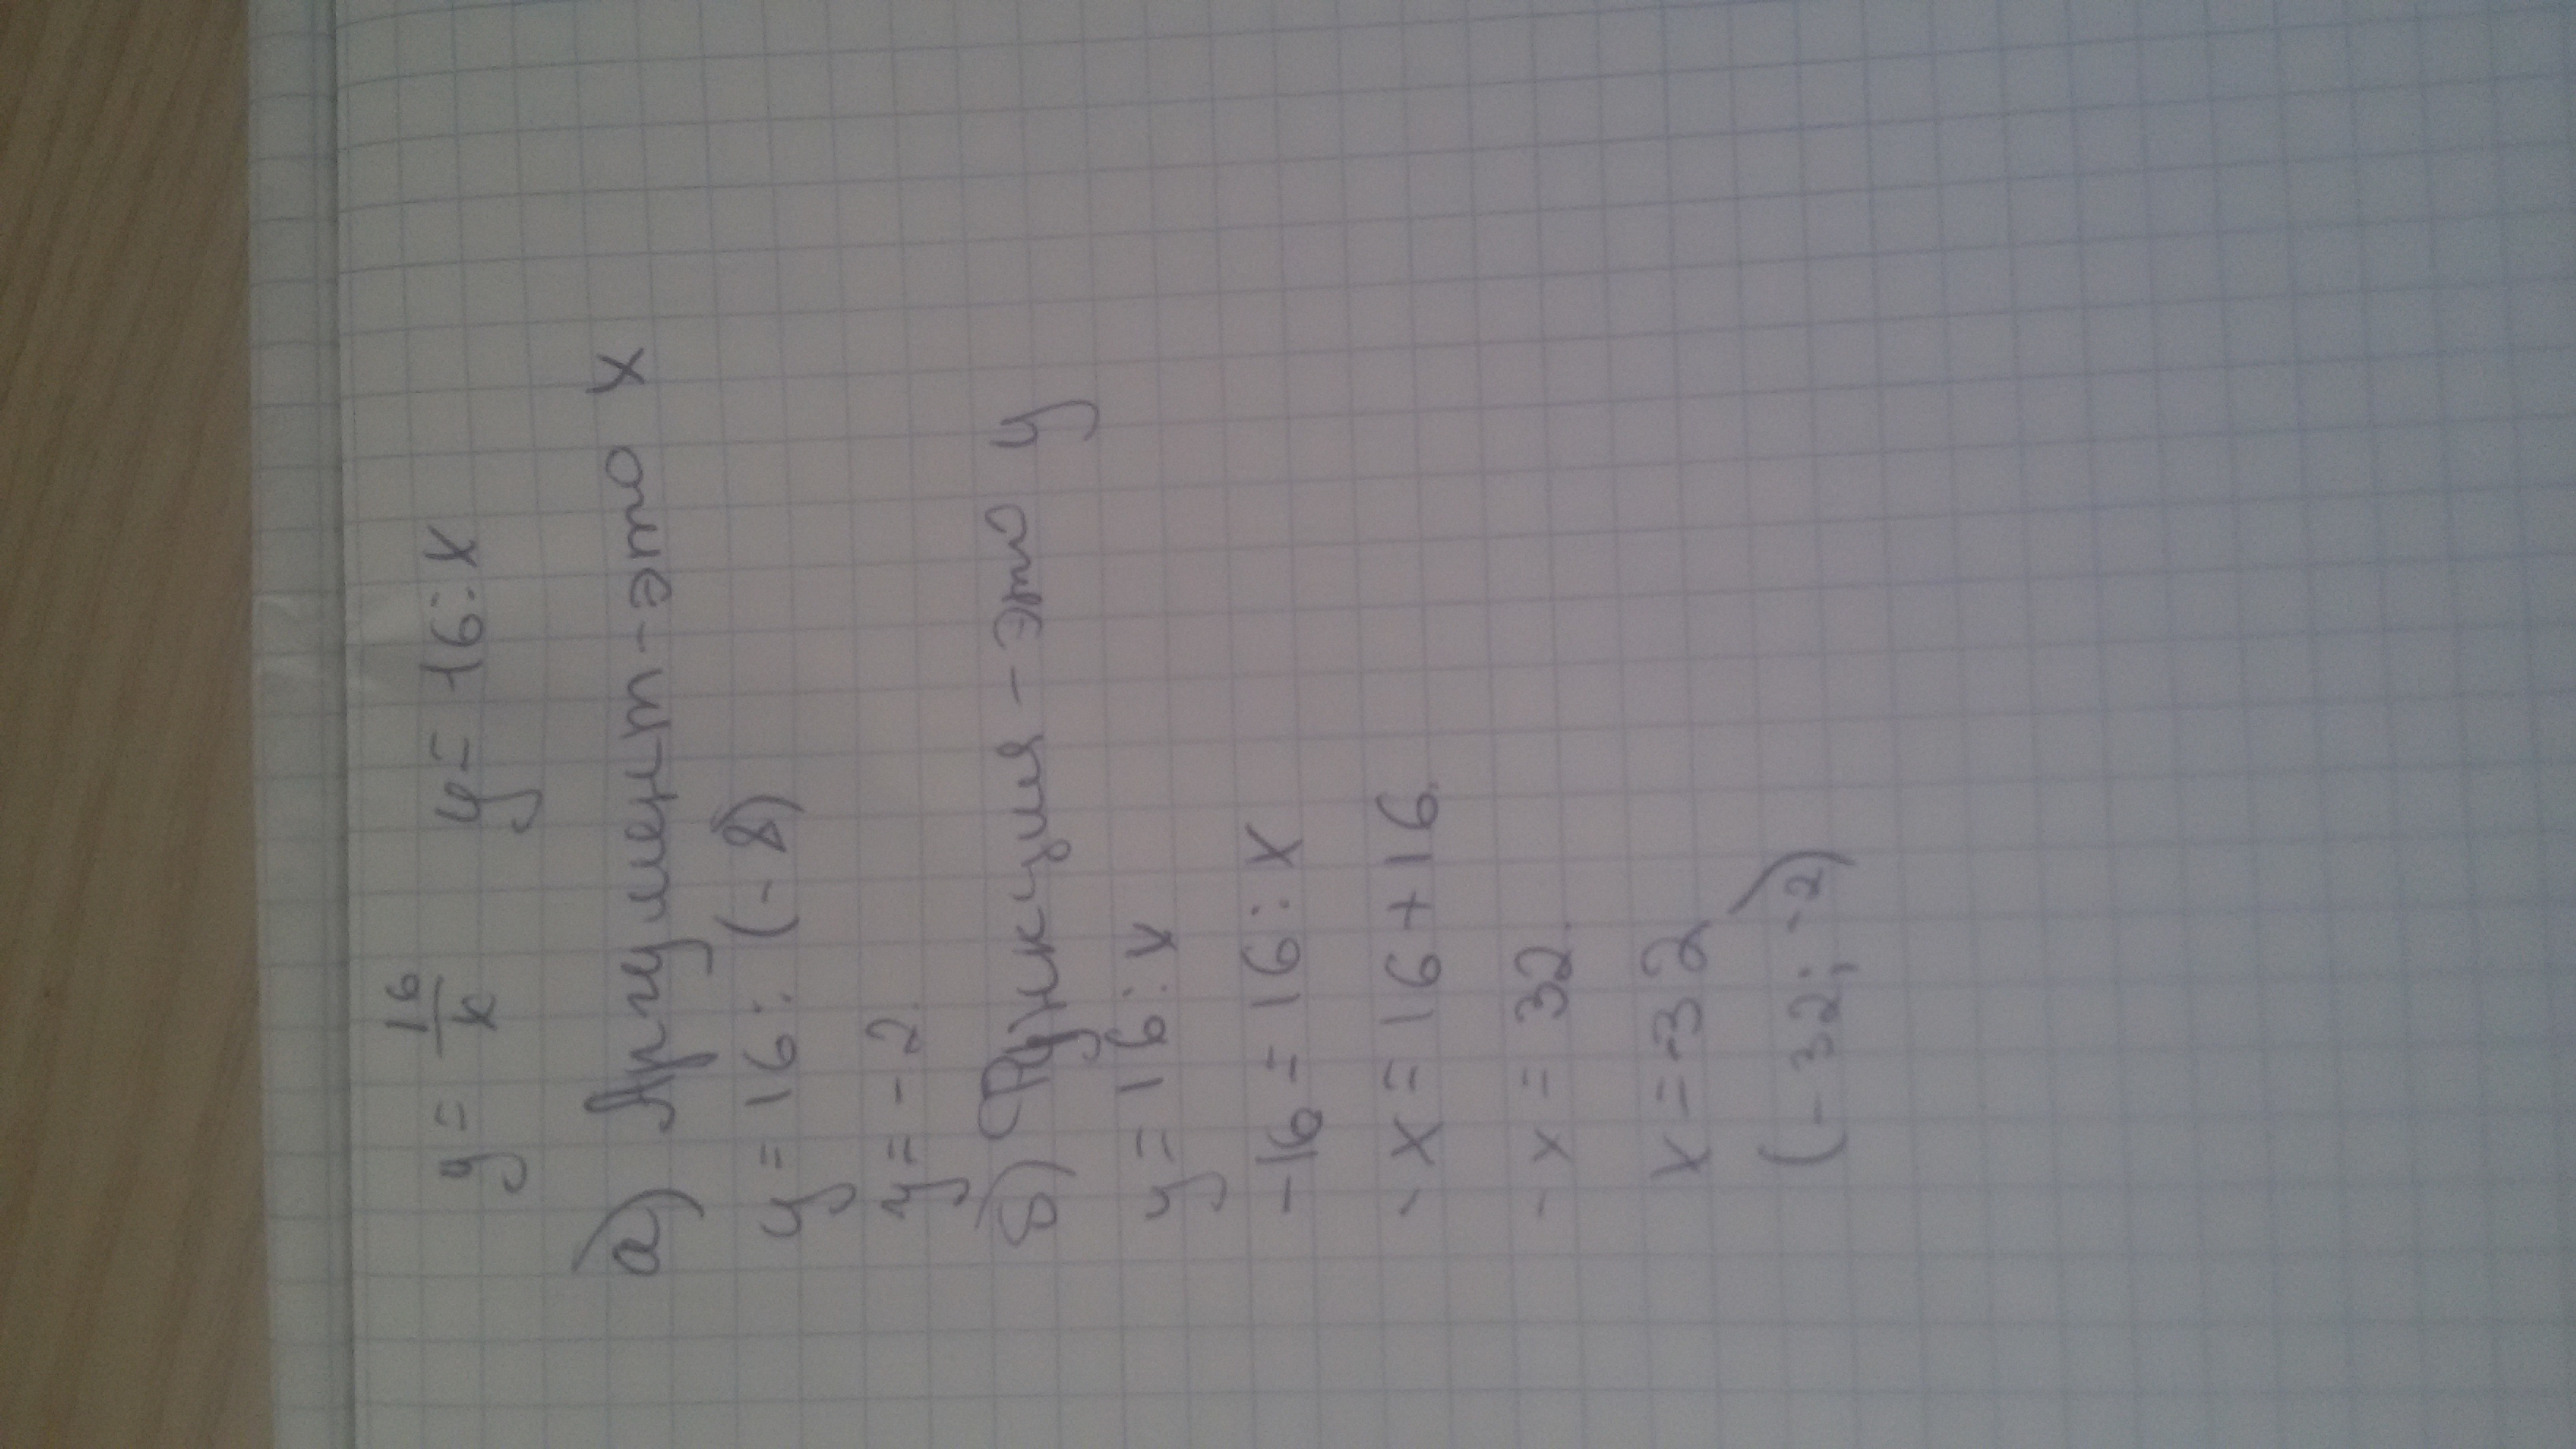 y = 16/x y = 16 : x
а) Аргумент - это x
y = 16 : (-8)
y = -2
б) Функция - это y
y = 16 : x
-16 = 16 : x
-x = 16 + 16
-x = 32
x = -32
(-32; -2)